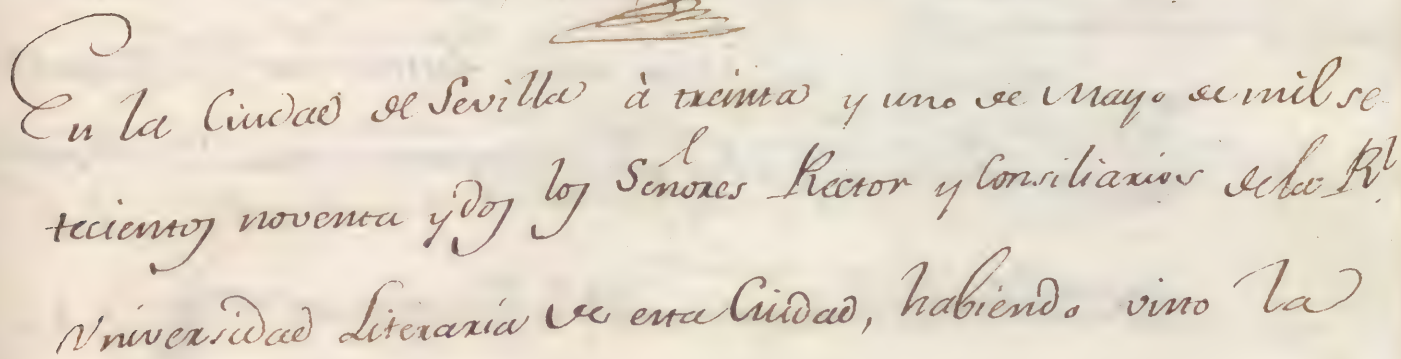 En la Ciudad de Sevilla à treinta y uno de Mayo de mil se
tecientos noventa y dos los Señores Rector y Consiliarios de la Rl.
Universidad Literaria de esta Ciudad, habiendo visto la